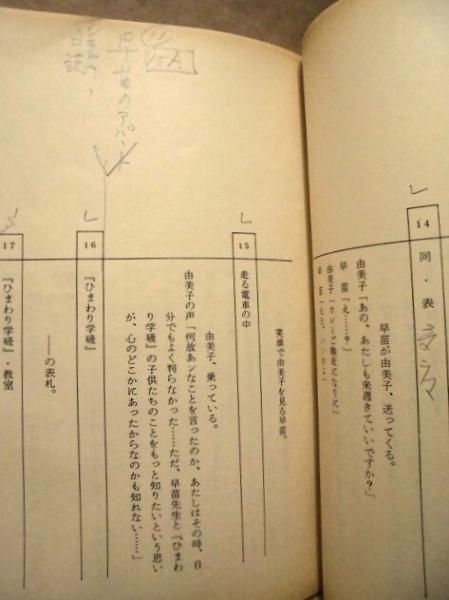 14
同・表
早苗が由美子、送ってくる。
由美子「あの、あたしも来週きていいですか？」
早苗「え……？」
由美子「カレーご馳走になりに」
笑顔で由美子を見る早苗。
15
走る電車の中
由美子、乗っている。
由美子の声「何故あンなことを言ったのか、あたしはその時、自
分でもよく判らなかった……ただ、早苗先生と『ひまわ
り学級』の子供たちのことをもっと知りたいという思い
が、心のどこかにあったからなのかも知れない……」
15A
早苗のアパート
16
『ひまわり学級』
――の表札。
17
『ひまわり学級』・教室